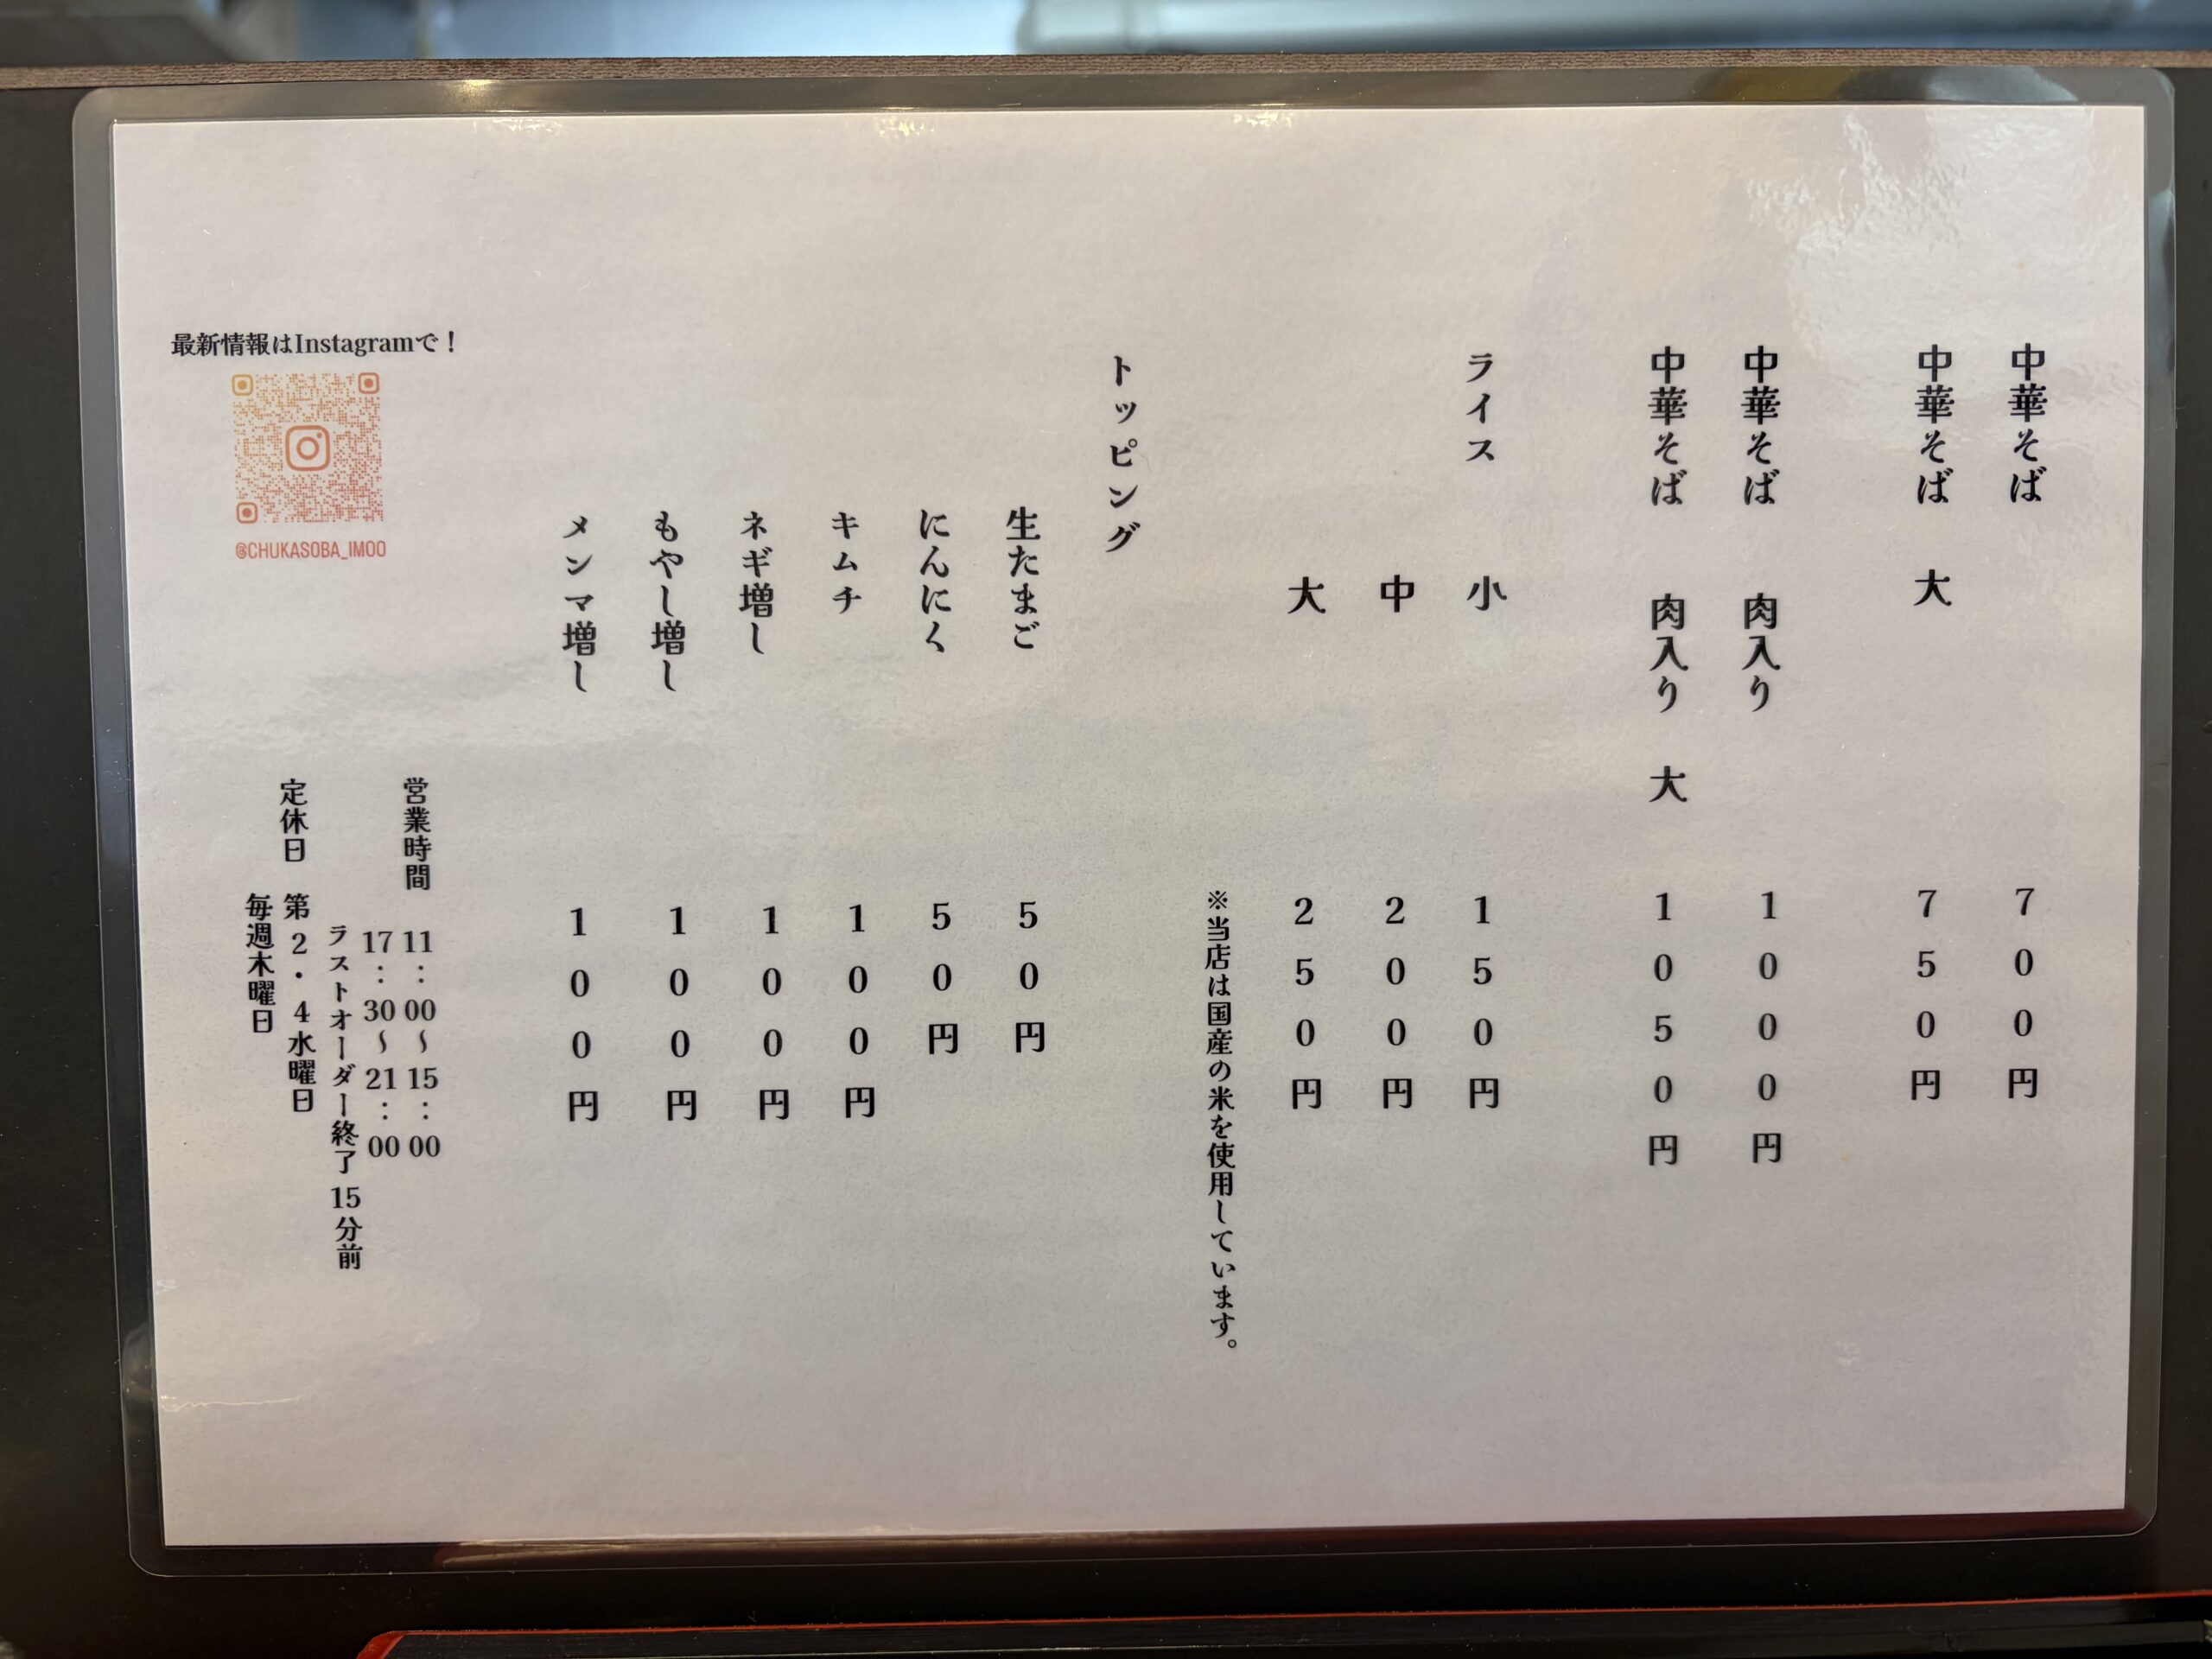 中華そば 700円
中華そば 大 750円
中華そば 肉入り 1000円
中華そば 肉入り 大 1050円
ライス 小 150円
中 200円
大 250円
※当店は国産の米を使用しています。
トッピング
生たまご 50円
にんにく 50円
キムチ 100円
ネギ増し 100円
もやし増し 100円
メンマ増し 100円
最新情報はInstagramで！
@CHUKASOBA_IMOO
営業時間 11：00～15：00
17：30～21：00
ラストオーダー終了15分前
定休日 第2・4水曜日
毎週木曜日